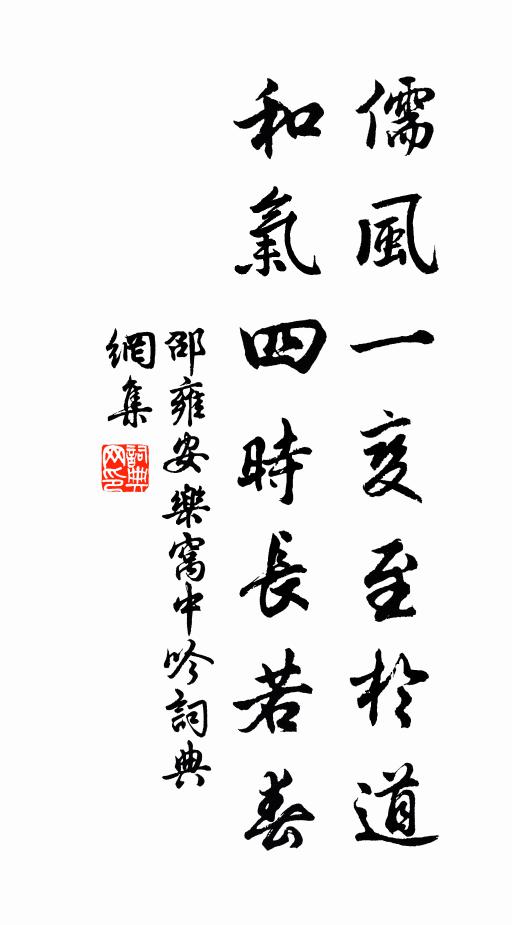 儒風一变至於道
和氣四時長若春
邵雍安樂窩中吟詞典
網集
詞典
网印